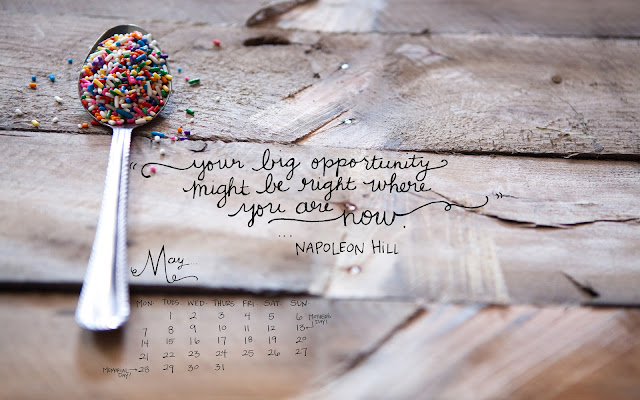 "your big opportunity
might be right where
you are now."
...
NAPOLEON HILL
May
MON TUES WED THURS FRI SAT SUN
1 2 3 4 5 6 MOTHERS DAY!
7 8 9 10 11 12 13
14 15 16 17 18 19 20
21 22 23 24 25 26 27
MEMORIAL DAY! 28 29 30 31